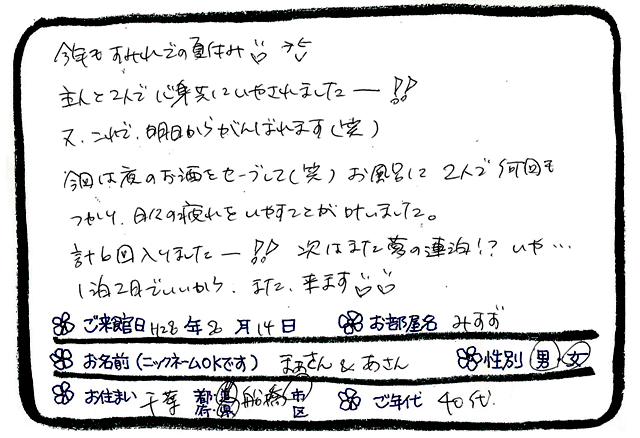 今年も すみれでの夏休み
主人と2人で 心身共にいやされましたー!!
又、これで、明日からがんばれます(笑)
今回は夜のお酒をセーブして(笑) お風呂に 2人で何回も
つかり、日々の疲れを いやすことが 叶いました。
計6回入りましたー!! 次はまた夢の連泊!? いや…
1泊2日でいいから、また、来ます
ご来館日 H28年 月14日 お部屋名 みすず
お名前(ニックネームOKです) まぁさん & あさん 性別 男・女
お住まい 千葉 都道府県 船橋 市区 ご年代 40代